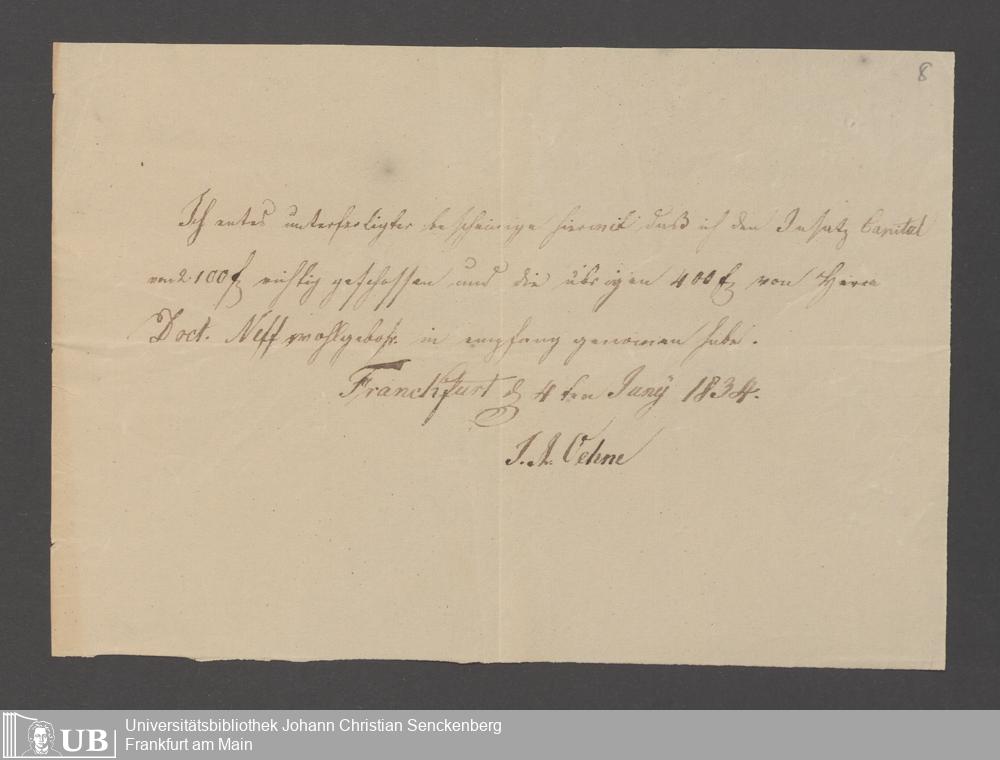 8
Ich unterfertigter bescheinige hiermit daß ich den Insatz Capital
von 2100 f richtig geschossen und die übrigen 400 f von Herrn
Doct. Neff wohlgebohr. in empfang genomen habe.
Franckfurt d 4ten Juny 1834.
J. A. Oehne
UB
Universitätsbibliothek Johann Christian Senckenberg
Frankfurt am Main